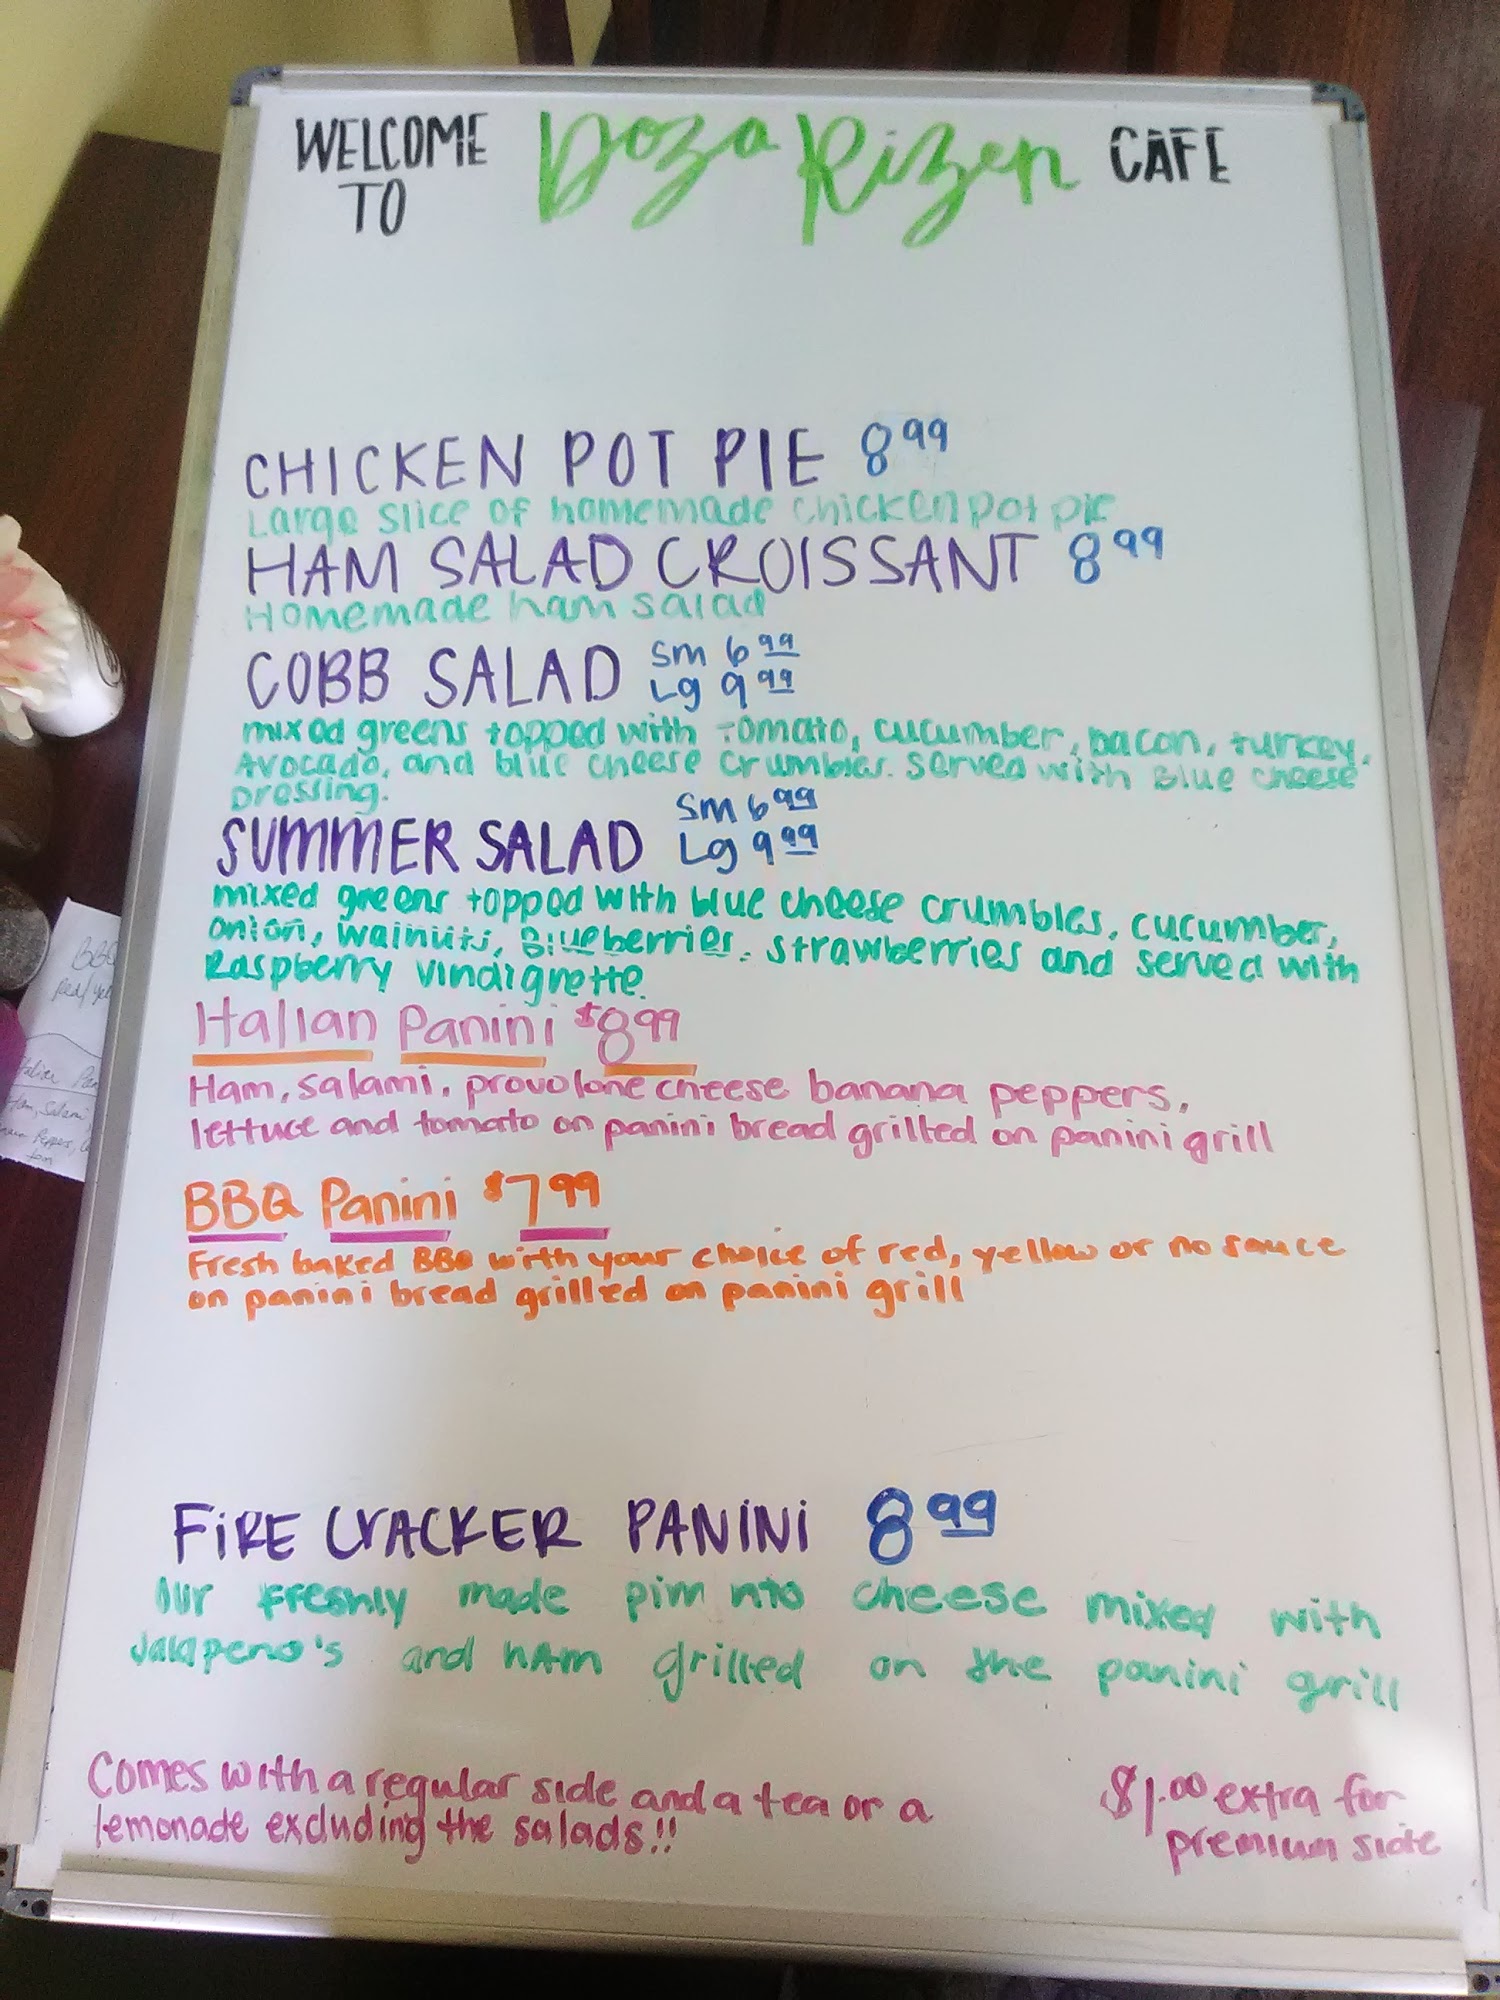 WELCOME TO Doza Rizen CAFE
CHICKEN POT PIE 8 99
Large slice of homemade chicken pot pie
HAM SALAD CROISSANT 8 99
Homemade ham salad
COBB SALAD Sm 6 99
Lg 9 99
mixed greens topped with tomato, cucumber, bacon, turkey,
Avocado, and blue cheese crumbles. Served with Blue cheese
Dressing.
SUMMER SALAD Sm 6 99
Lg 9 99
mixed greens topped with blue cheese crumbles, cucumber,
onion, walnuts, Blueberries, strawberries and served with
Raspberry vindigrette.
Italian Panini $8 99
Ham, salami, provolone cheese banana peppers,
lettuce and tomato on panini bread grilled on panini grill
BBQ Panini $7 99
Fresh baked BBQ with your choice of red, yellow or no sauce
on panini bread grilled on panini grill
FIRE CRACKER PANINI 8 99
Our freshly made pimnto cheese mixed with
Jalapeno's and ham grilled on the panini grill
Comes with a regular side and a tea or a
lemonade excluding the salads!!
$1.00 extra for
premium side
BBQ
Ham, Salami